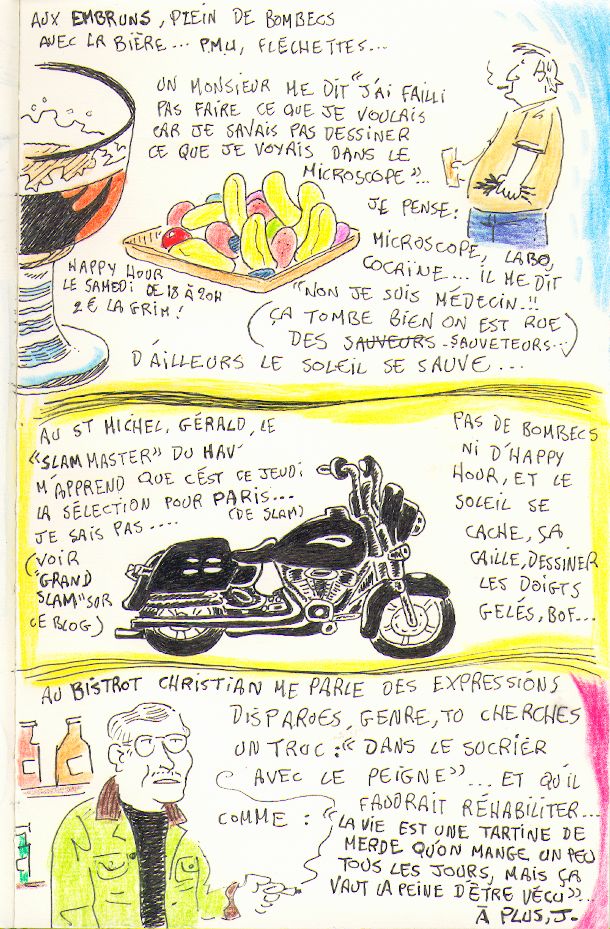 AUX EMBRUNS, PLEIN DE BOMBECS
AVEC LA BIÈRE... PMU, FLÉCHETTES...
UN MONSIEUR ME DIT "J'AI FAILLI
PAS FAIRE CE QUE JE VOULAIS
CAR JE SAVAIS PAS DESSINER
CE QUE JE VOYAIS DANS LE
MICROSCOPE"...
JE PENSE:
MICROSCOPE, LABO,
COCAÏNE... IL ME DIT
"NON JE SUIS MÉDECIN..!!
(ÇA TOMBE BIEN ON EST RUE
DES SAUVEURS - SAUVETEURS...)
D'AILLEURS LE SOLEIL SE SAUVE...
HAPPY HOUR
LE SAMEDI DE 18 À 20H
2€ LA GRIM!
AU ST MICHEL, GÉRALD, LE
"SLAM MASTER" DU HAV'
M'APPREND QUE C'EST CE JEUDI
LA SÉLECTION POUR PARIS...
(DE SLAM)
JE SAIS PAS....
(VOIR
"GRAND
SLAM" SUR
CE BLOG)
PAS DE BOMBECS
NI D'HAPPY
HOUR, ET LE
SOLEIL SE
CACHE, ÇA
CAILLE, DESSINER
LES DOIGTS
GELÉS, BOF...
AU BISTROT CHRISTIAN ME PARLE DES EXPRESSIONS
DISPARUES, GENRE, TU CHERCHES
UN TRUC: "DANS LE SUCRIER
AVEC LE PEIGNE"... ET QU'IL
FAUDRAIT RÉHABILITER...
COMME: "LA VIE EST UNE TARTINE DE
MERDE QU'ON MANGE UN PEU
TOUS LES JOURS, MAIS ÇA
VAUT LA PEINE D'ÊTRE VÉCU"...
À PLUS, J.